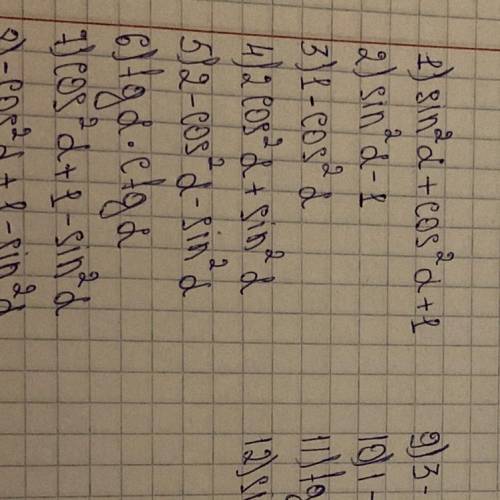 1) sin²α + cos²α + 1
2) sin²α - 1
3) 1 - cos²α
4) 2cos²α + sin²α
5) 2 - cos²α - sin²α
6) tgα · ctgα
7) cos²α + 1 - sin²α
8) -cos²α + 1 - sin²α
9) 3 -
10)
11) tg
12) si